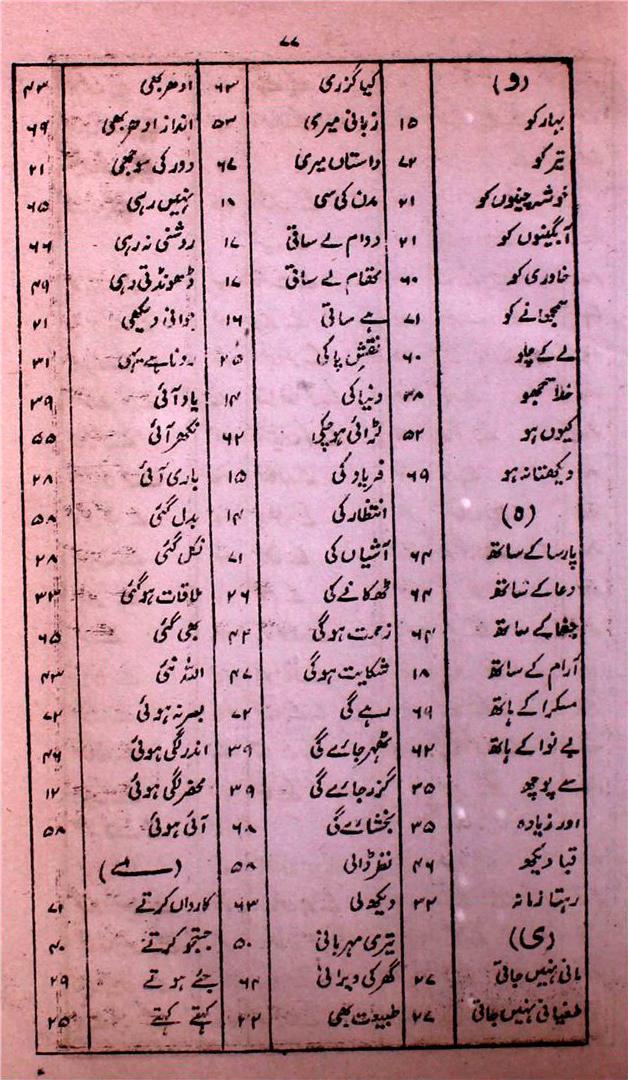 ۷۷
(و) کیا گزری ۶۳ ادھر بھی ۴۳
بہار کو ۱۵ زبانی میری ۵۳ انداز ادھر بھی ۶۹
تیر کو ۷۲ داستاں میری ۶۷ دور کی سوجھی ۲۱
خوشہ چینوں کو ۲۱ مدن کی سی ۱۸ نہیں رہی ۶۵
آبگینوں کو ۲۱ دوام لے ساقی ۱۷ روشنی نہ رہی ۶۶
خاوری کو ۶۰ مقام لے ساقی ۱۷ ڈھونڈتی رہی ۴۹
سمجھانے کو ۷۱ ہے ساقی ۱۶ جوانی دیکھی ۲۱
لے کے چلو ۶۰ نقشِ پا کی ۲۵ رونا ہے یہی ۳۱
خلا سمجھو ۳۸ دنیا کی ۱۴ یاد آئی ۳۹
کیوں ہو ۵۲ لڑائی ہو چکی ۶۲ نکھر آئی ۵۵
دیکھتا نہ ہو ۶۹ فریاد کی ۱۵ باری آئی ۲۸
(ہ) انتظار کی ۱۴ بدل گئی ۵۸
پارسا کے ساتھ ۶۴ آشیاں کی ۷۱ نکل گئی ۲۸
دعا کے ساتھ ۶۴ ٹھکانے کی ۲۶ ملاقات ہو گئی ۳۳
جفا کے ساتھ ۶۴ زحمت ہو گی ۴۲ بھی گئی ۶۵
آرام کے ساتھ ۱۸ شکایت ہو گی ۴۷ الٹ گئی ۴۳
مسکرا کے ہاتھ ۶۹ رہے گی ۷۲ بسر نہ ہوئی ۷۲
بے نوا کے ہاتھ ۶۲ ٹھہر جائے گی ۳۹ اندر لگی ہوئی ۴۶
سے پوچھو ۲۵ گزر جائے گی ۳۹ محفر لگی ہوئی ۱۲
اور زیادہ ۳۵ بخشائے گی ۶۸ آئی ہوئی ۵۸
قبا دیکھ ۴۶ نظر ڈالی ۵۸ (ے)
رہتا زمانہ ۳۲ دیکھ لی ۶۳ کارواں کرتے ۷۲
(ی) تیری مہربانی ۵۰ جستجو کرتے ۴۰
مانی نہیں جاتی ۲۷ گھر کی ویرانی ۶۴ جئے ہوتے ۲۹
طغیانی نہیں جاتی ۲۷ طبیعت بھی ۲۲ کہتے کہتے ۲۵